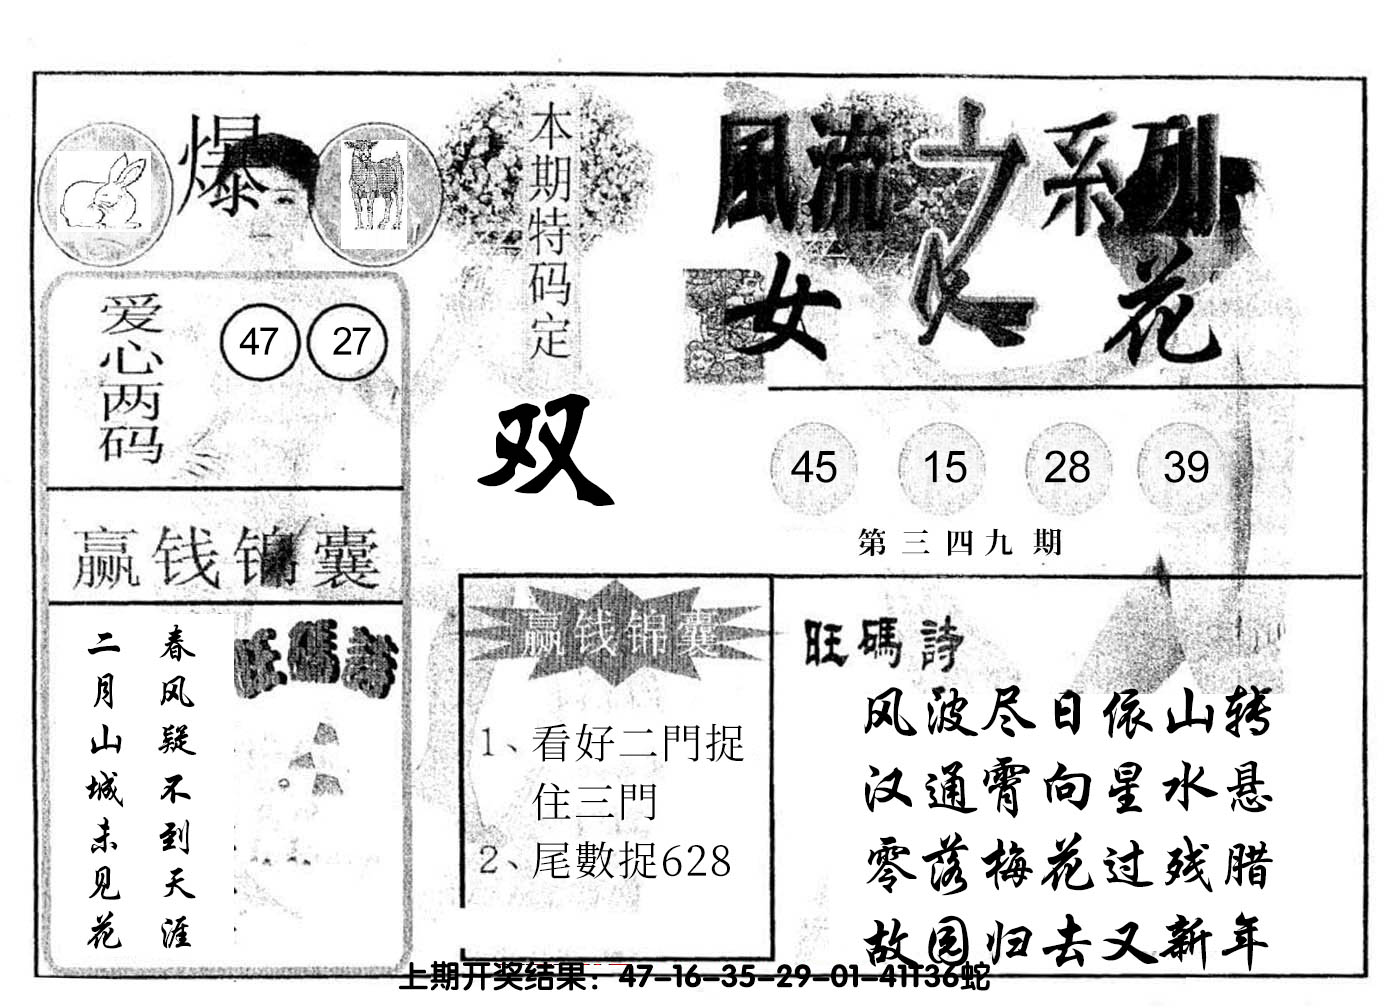 爆
本期特码定
双
風流之系列
女人花
爱心两码
47 27
45 15 28 39
第三四九期
赢钱锦囊
旺碼詩
春风疑不到天涯
二月山城未见花
赢钱锦囊
1、看好二門捉
住三門
2、尾數捉628
旺碼詩
风波尽日依山转
汉通霄向星水悬
零落梅花过残腊
故园归去又新年
上期开奖结果：47-16-35-29-01-41T36蛇